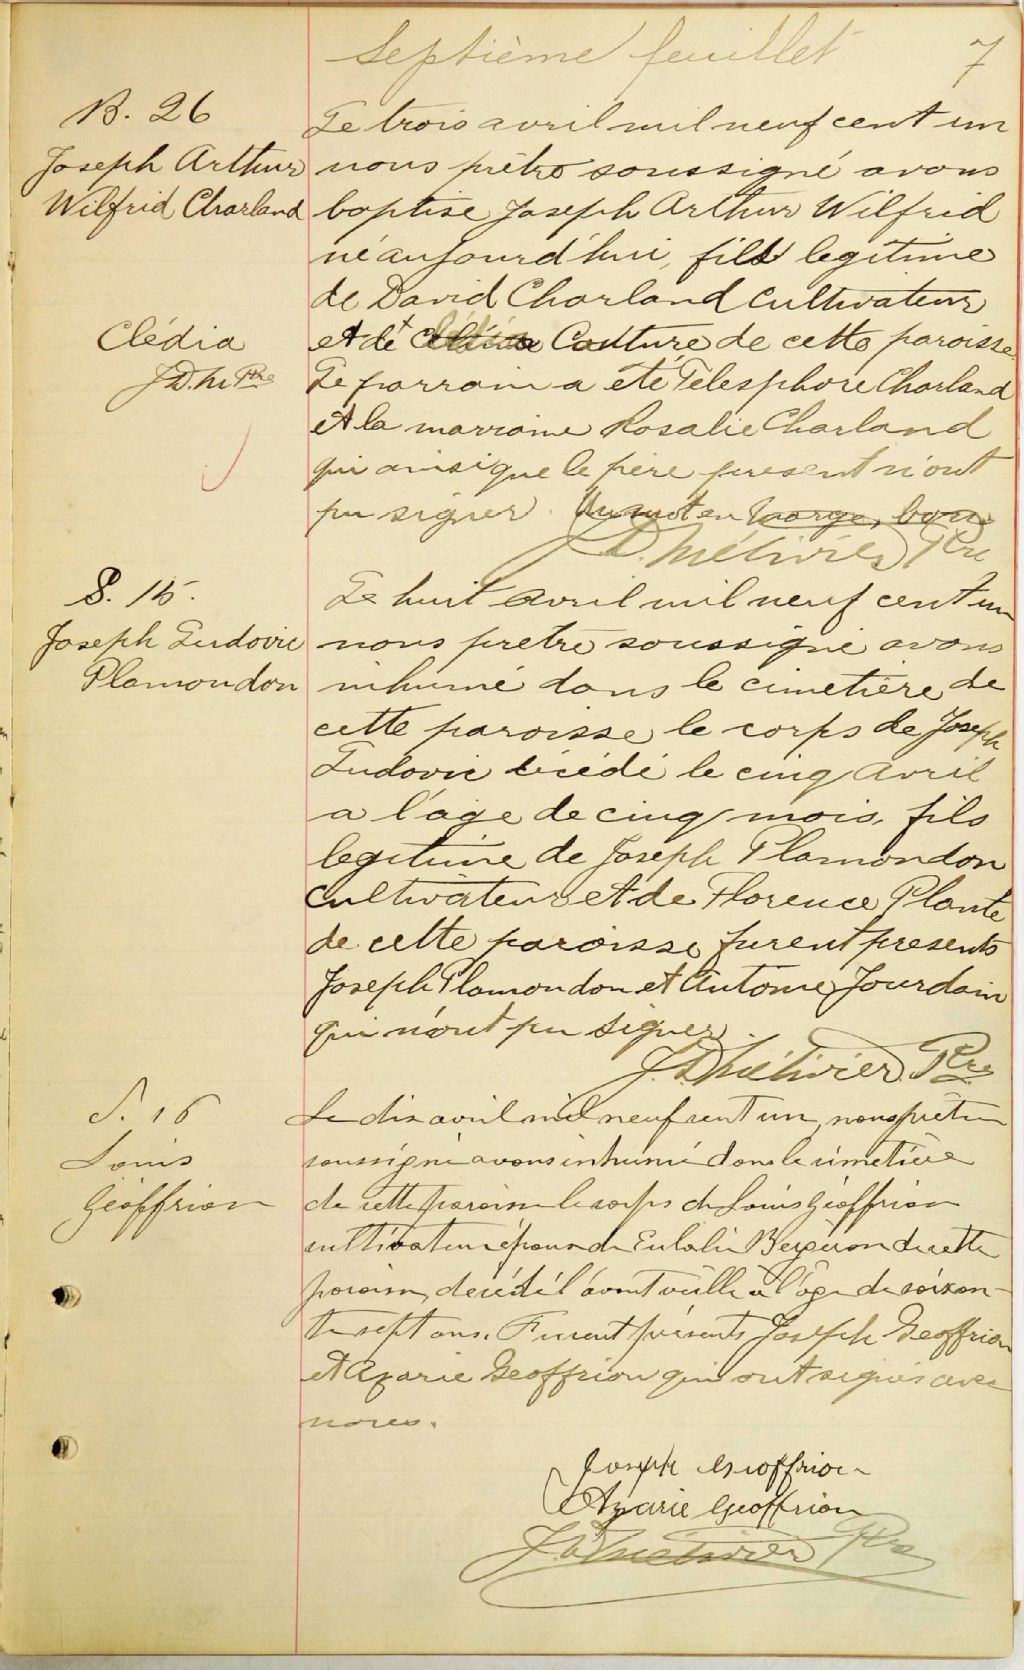 Septième feuillet 7
B. 26
Joseph Arthur
Wilfrid Charland
Clédia
J.D.M. Ptre
Le trois avril mil neuf cent un
nous prêtre soussigné avons
baptise Joseph Arthur Wilfrid
né aujourd'hui, fils legitime
de David Charland cultivateur
et de Couture de cette paroisse.
Le parrain a eté Telesphore Charland
et la marraine Rosalie Charland
qui ainsi que le père present n'ont
pu signer. Un mot en marge, bon
J.D. Métivier Ptre
S. 15.
Joseph Ludovic
Plamondon
Le huit avril mil neuf cent un
nous pretre soussigné avons
inhumé dans le cimetière de
cette paroisse le corps de Joseph
Ludovic décédé le cinq Avril
a l'age de cinq mois, fils
legitime de Joseph Plamondon
cultivateur et de Florence Plante
de cette paroisse, furent presents
Joseph Plamondon et Antoine Jourdain
qui n'ont pu signer.
J.D. Métivier Ptre
S. 16
Louis
Géoffrion
Le dix avril mil neuf cent un, nous prêtre
soussigné avons inhumé dans le cimetière
de cette paroisse le corps de Louis Géoffrion
cultivateur époux de Eulalie Bergeron de cette
paroisse, décédé l'avant veille à l'âge de soixan-
te sept ans. Furent présents Joseph Geoffrion
et Azarie Geoffrion qui ont signés avec
nous.
Joseph Geoffrion
Azarie Geoffrion
J.D. Métivier Ptre